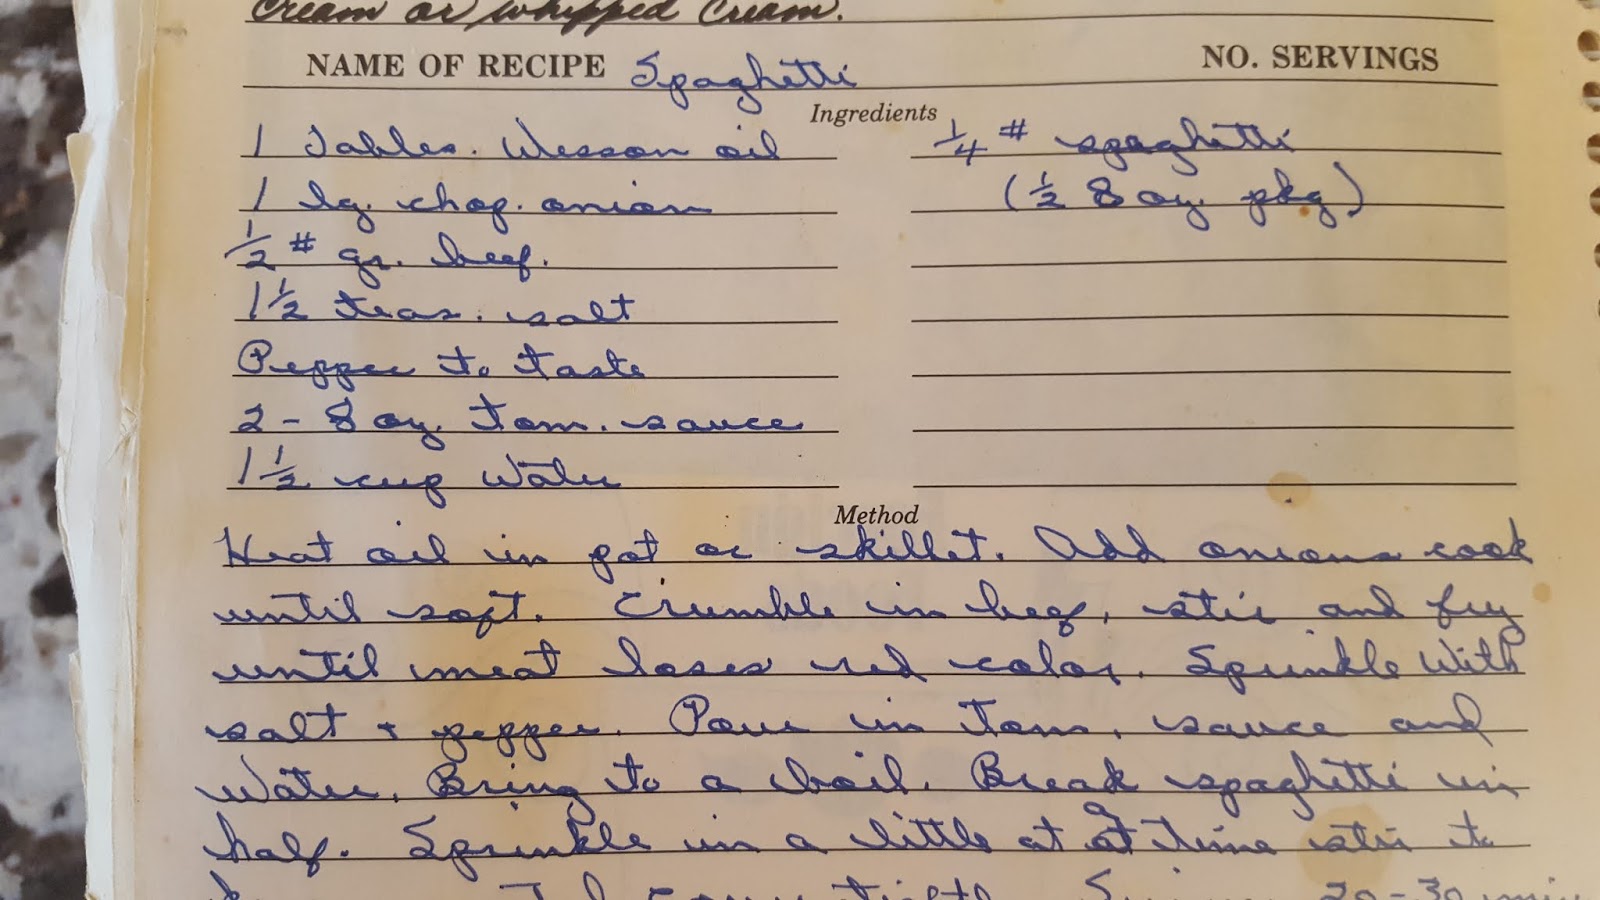 Cream or whipped Cream.
NAME OF RECIPE Spaghetti NO. SERVINGS
Ingredients
1 Tables. Wesson oil
1 lg. chop. onion
1/2 # gr. beef.
1 1/2 teas. salt
Pepper to taste
2 - 8 oz. tom. sauce
1 1/2 cup water
1/4 # spaghetti
(1/2 8 oz. pkg)
Method
Heat oil in pot or skillet. Add onions cook
until soft. Crumble in beef, stir and fry
until meat loses red color. Sprinkle with
salt + pepper. Pour in tom. sauce and
water. Bring to a boil. Break spaghetti in
half. Sprinkle in a little at a time stir to
cover tightly. Simmer 20-30 min